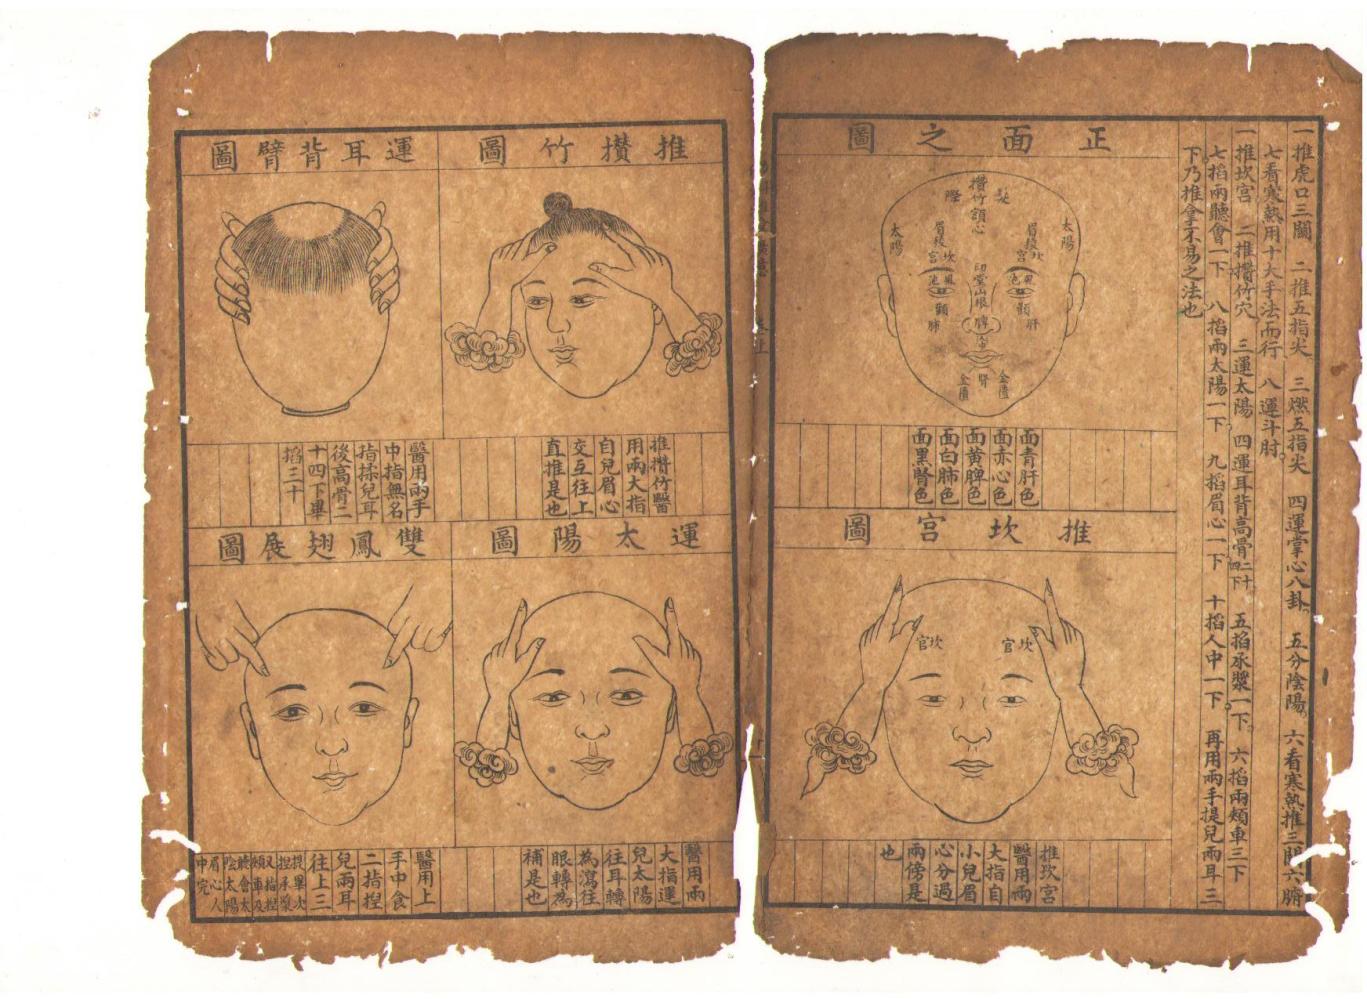 一推虎口三關　二推五指尖　三燃五指尖　四運掌心八卦　五分陰陽　六看寒熱推三關六腑
七看寒熱用十大手法而行　八運斗肘
一推坎宮　二推攢竹穴　三運太陽　四運耳背高骨二十四下　五掐承漿一下　六掐兩頰車三下
七掐兩聽會一下　八掐兩太陽一下　九掐眉心一下　十掐人中一下　再用兩手提兒兩耳三
下乃推拿不易之法也
正面之圖
髮際
攢竹
額心
太陽
太陽
眉稜
眉稜
坎宮
坎宮
印堂
山根
風池
風池
顴
顴
肝
肺
脾
腎
金匱
金匱
面青肝色
面赤心色
面黃脾色
面白肺色
面黑腎色
推坎宮圖
坎官
坎官
推坎宮
醫用兩
大指自
小兒眉
心分過
兩傍是
也
推攢竹圖
推攢竹醫
用兩大指
自兒眉心
交互往上
直推是也
運耳背臂圖
醫用兩手
中指無名
指揉兒耳
後高骨二
十四下畢
掐三十
運太陽圖
醫用兩
大指運
兒太陽
往耳轉
為瀉往
眼轉為
補是也
雙鳳翅展圖
醫用上
手中食
二指捏
兒兩耳
往上三
提畢次
捏承漿
又掐捏
頰車及
聽會太
陰太陽
眉心人
中完